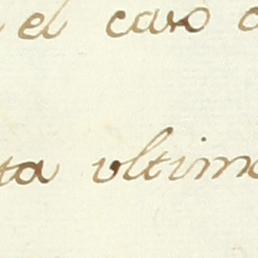 el caso
ta ultima